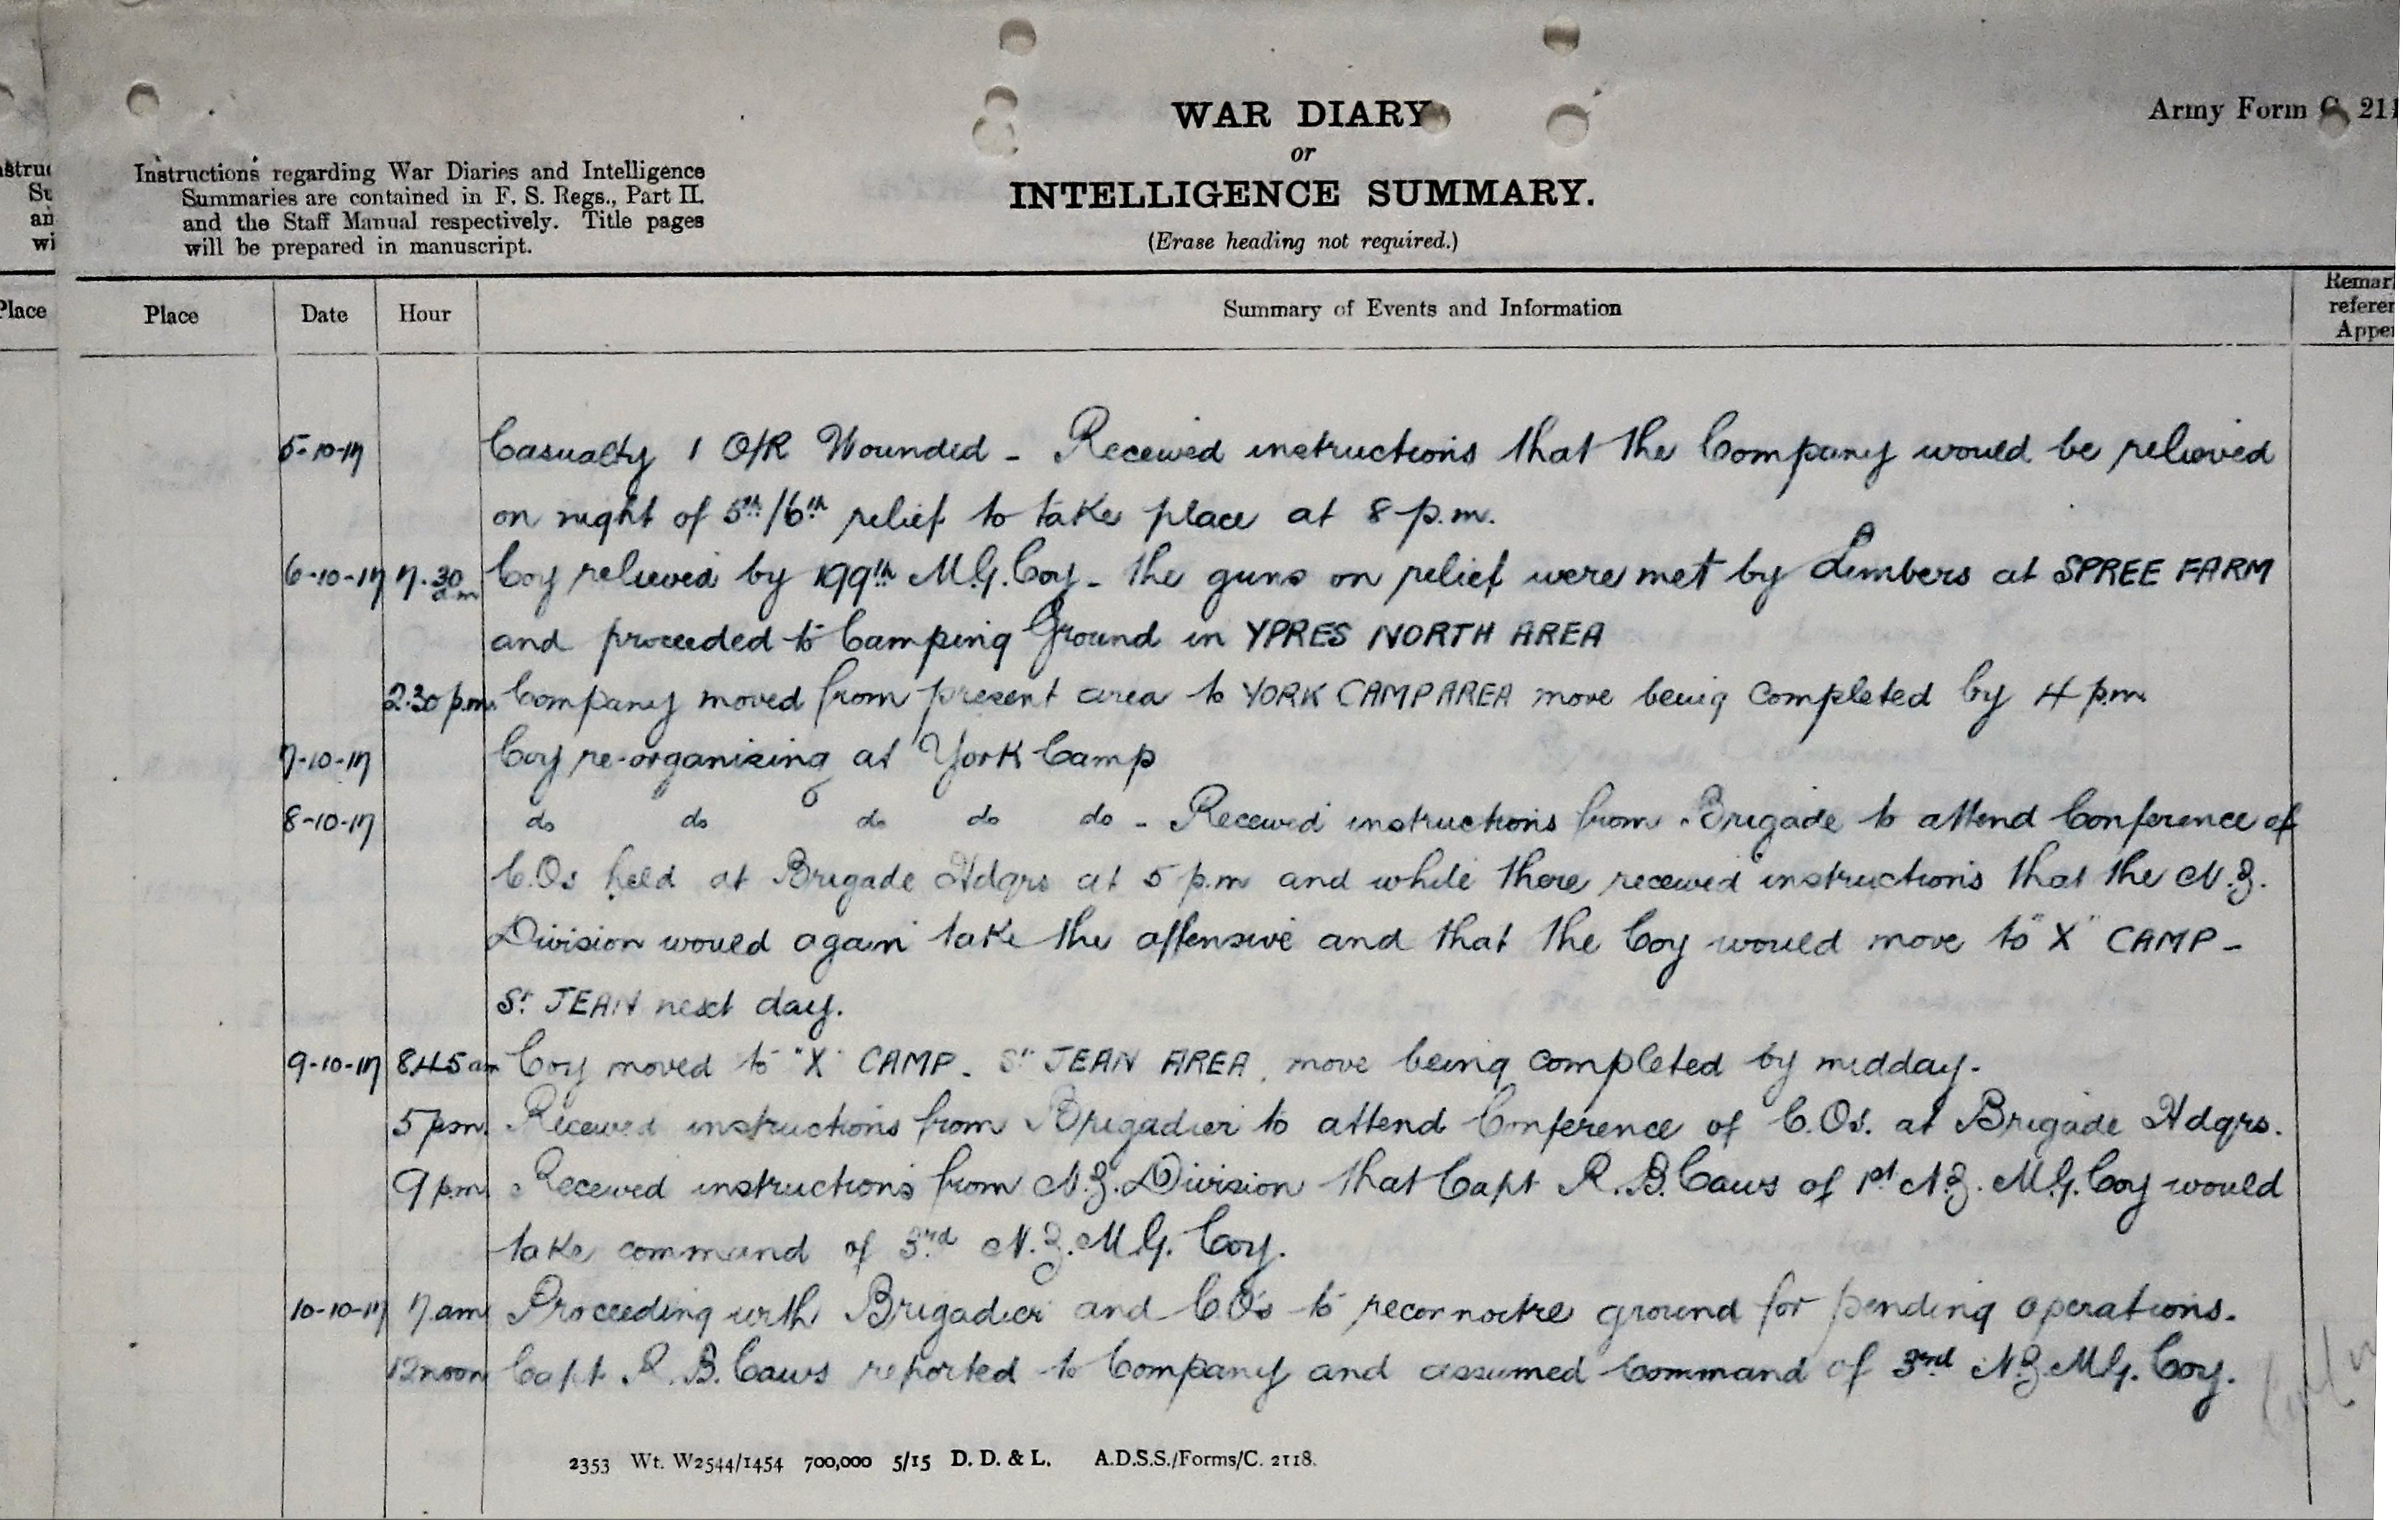 WAR DIARY
or
INTELLIGENCE SUMMARY.
(Erase heading not required.)
Army Form C. 211
Instructions regarding War Diaries and Intelligence
Summaries are contained in F. S. Regs., Part II.
and the Staff Manual respectively. Title pages
will be prepared in manuscript.
Place
Place Date Hour Summary of Events and Information
5-10-17 Casualty 1 O/R Wounded - Received instructions that the Company would be relieved
on night of 5th/6th relief to take place at 8 p.m.
6-10-17 7.30 am Coy relieved by 199th M.G. Coy - the guns on relief were met by Limbers at SPREE FARM
and proceeded to Camping Ground in YPRES NORTH AREA
2.30 p.m. Company moved from present area to YORK CAMP AREA move being completed by 4 p.m.
7-10-17 Coy re-organising at York Camp
8-10-17 do do do do do - Received instructions from Brigade to attend Conference of
C.Os held at Brigade Hdqrs at 5 p.m and while there received instructions that the N.Z.
Division would again take the offensive and that the Coy would move to "X" CAMP -
St JEAN next day.
9-10-17 8.45 am Coy moved to "X" CAMP - St JEAN AREA, move being completed by midday.
5 pm. Received instructions from Brigadier to attend Conference of C.Os. at Brigade Hdqrs.
9 p.m. Received instructions from N.Z. Division that Capt R.B. Caws of 1st N.Z. M.G. Coy would
take command of 3rd N.Z. M.G. Coy.
10-10-17 7 am Proceeding with Brigadier and C.O's to reconnoitre ground for pending operations.
12 noon Capt R.B. Caws reported to Company and assumed Command of 3rd N.Z. M.G. Coy.
2353 Wt. W2544/1454 700,000 5/15 D. D. & L. A.D.S.S./Forms/C. 2118.